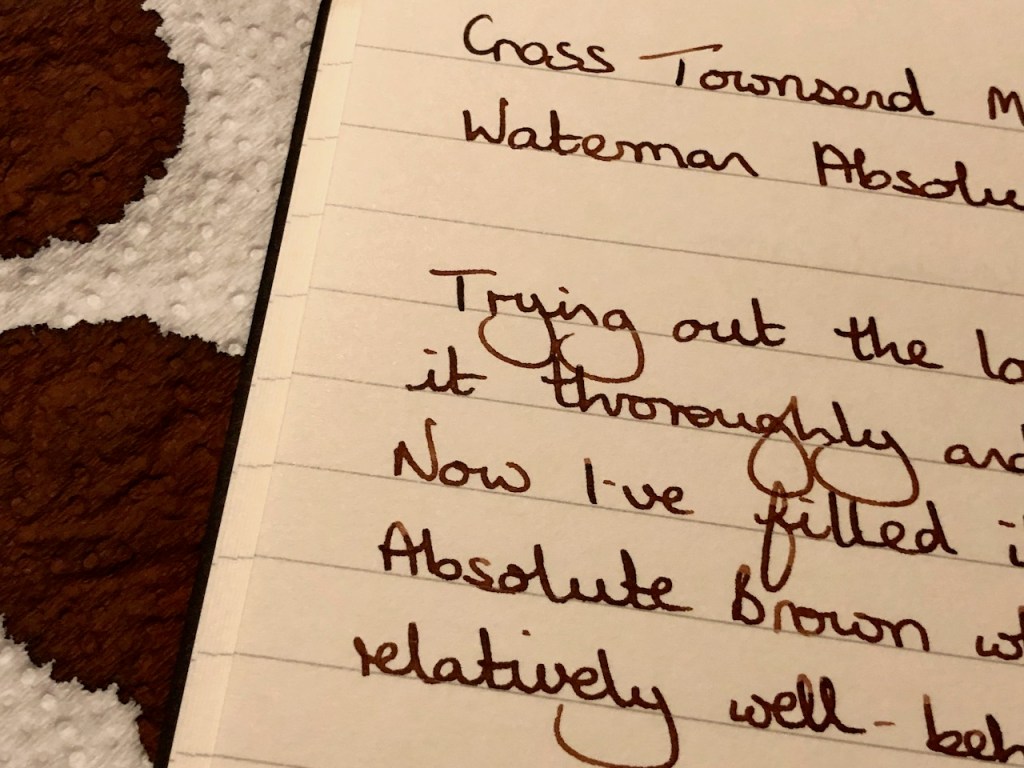 Cross Townsend M
Waterman Absolu
Trying out the lo
it thoroughly and
Now I've filled i
Absolute Brown wh
relatively well-beh